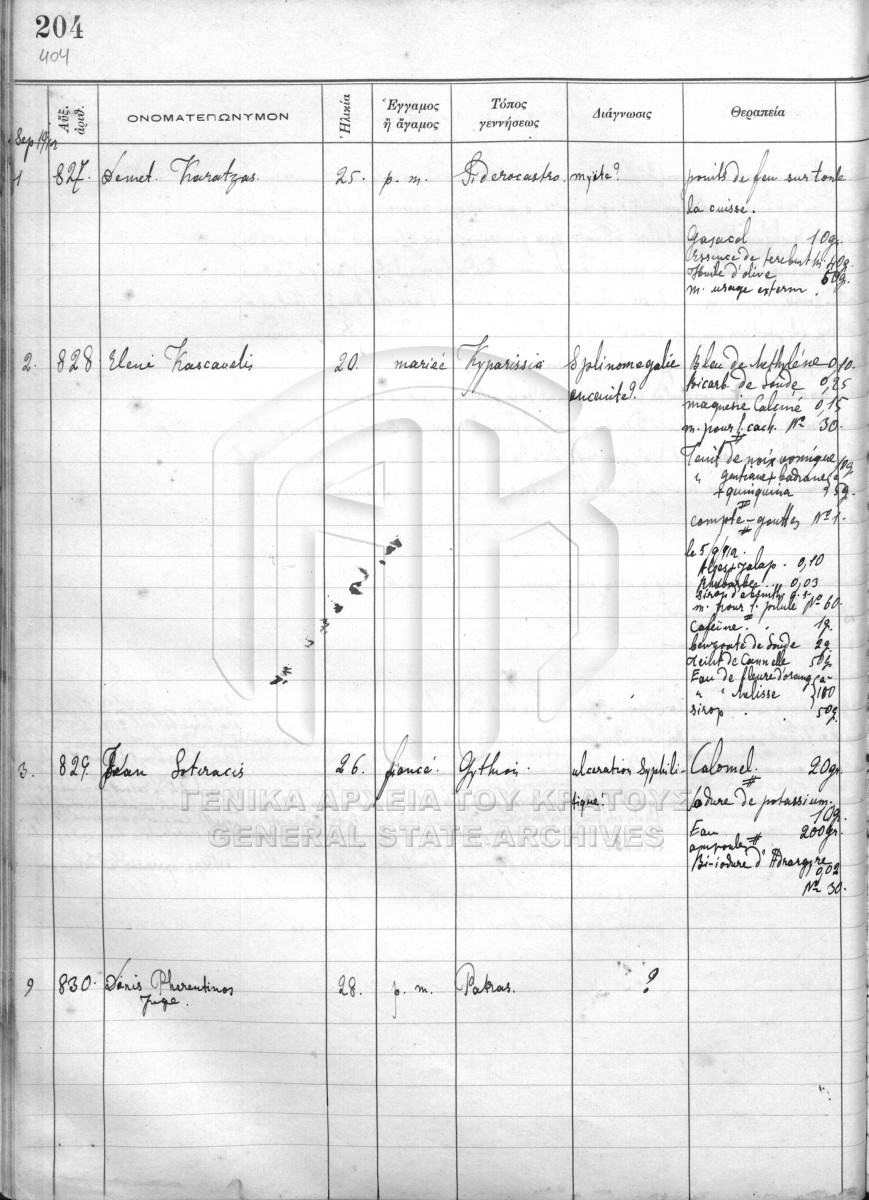 204
404
Αὔξ. ἀριθ.
ΟΝΟΜΑΤΕΠΩΝΥΜΟΝ
Ἡλικία
Ἔγγαμος ἢ ἄγαμος
Τόπος γεννήσεως
Διάγνωσις
Θεραπεία
1 827. Demet. Karatzas. 25. p. m. Siderocastro. myite? points de feu sur toute
la cuisse.
Gajacol 10gr.
Essence de terebenth. 40g.
Huile d'olive 50g.
m. usage extern.
2. 828 Eleni Kascavelis 20. mariée Kyparissia Splinomegalie Bleu de Methylène 0,10.
enceinte? Bicarb. de Soude 0,25
magnesie Calciné 0,15
m. pour 1. cach. No 30.
Teint de noix vomique 10g
" gentiane + badiane
+ quinquina
compte-gouttes No 1.
le 5/9/12.
Aloes + Jalap. 0,10
Rhubarbe.. 0,03
sirop d'absinth q.s.
m. pour 1. pilule No 60.
Cafeïne.. 1g.
benzoate de Soude 2g.
Teint de Cannelle 50g
Eau de fleurs d'orang
" " Melisse 100
sirop. 50g.
3. 829. Jean Sotiracis 26. fiancé. Gythion ulceration Syphili- Calomel. 20gr.
tique. Iodure de potassium.
10g.
Eau 200gr.
ampoules
Bi-iodure d'Hdrargyre
0,02
No 30.
9 830. Dōnis Pherentinos 28. p. m. Patras. ?
juge.
ΓΕΝΙΚΑ ΑΡΧΕΙΑ ΤΟΥ ΚΡΑΤΟΥΣ
GENERAL STATE ARCHIVES